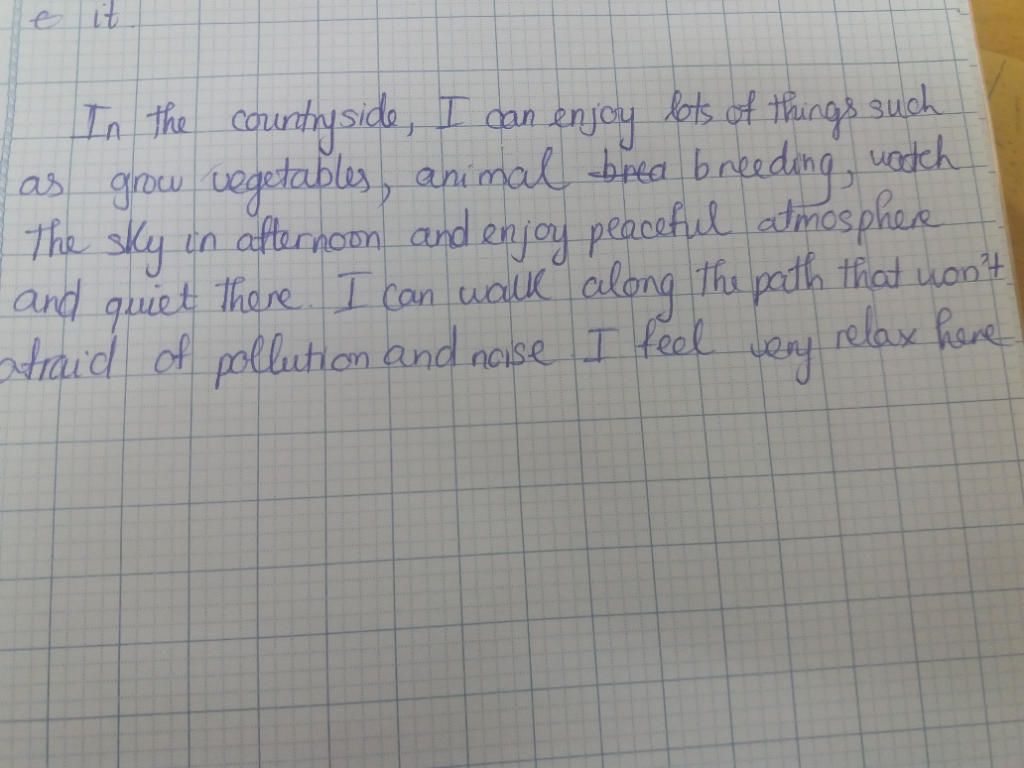 e it.
In the countryside, I can enjoy lots of things such
as grow vegetables, animal brea breeding, watch
the sky in afternoon and enjoy peaceful atmosphere
and quiet there. I can walk along the path that won't
afraid of pollution and noise I feel very relax here